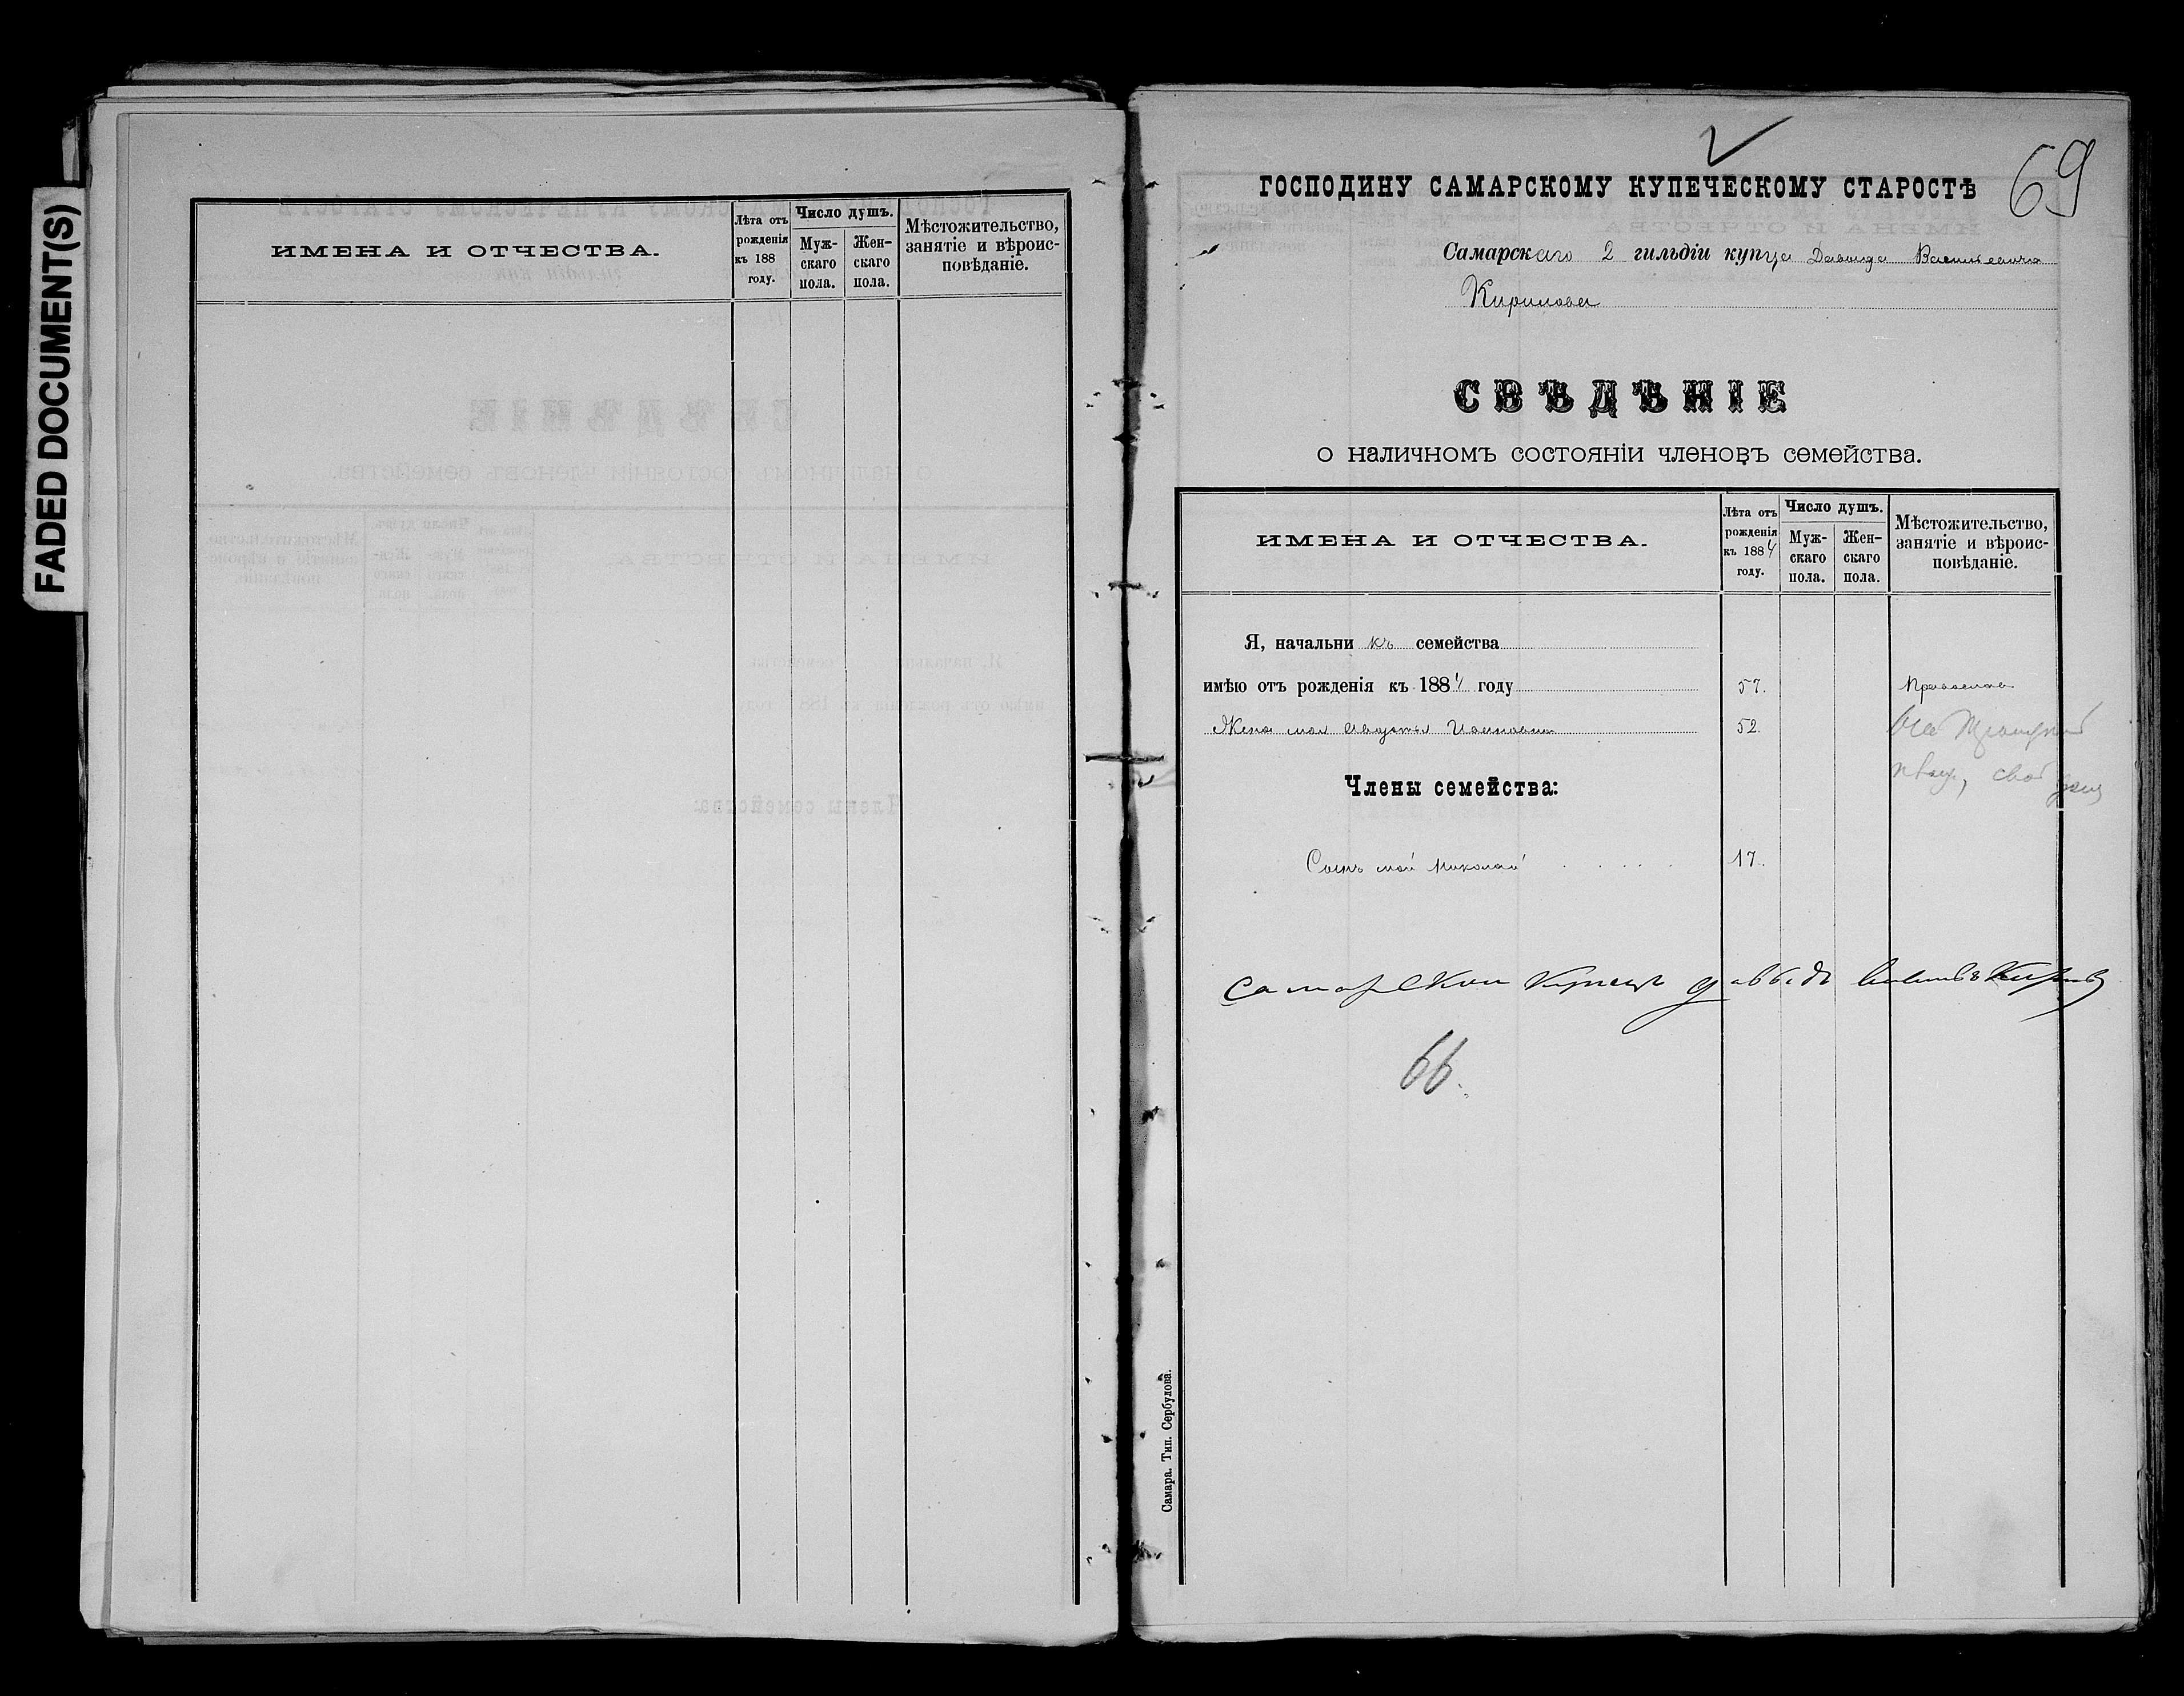 FADED DOCUMENT(S)
ИМЕНА И ОТЧЕСТВА.
Лѣта отъ рожденія къ 188 году.
Число душъ.
Мужскаго пола.
Женскаго пола.
Мѣстожительство, занятіе и вѣроисповѣданіе.
69
ГОСПОДИНУ САМАРСКОМУ КУПЕЧЕСКОМУ СТАРОСТѢ
Самарскаго 2 гильдіи купца Давыда Васильевича
Кирилова
СВѢДѢНІЕ
о наличномъ состояніи членовъ семейства.
ИМЕНА И ОТЧЕСТВА.
Лѣта отъ рожденія къ 1884 году.
Число душъ.
Мужскаго пола.
Женскаго пола.
Мѣстожительство, занятіе и вѣроисповѣданіе.
Я, начальникъ семейства
имѣю отъ рожденія къ 1884 году 57. Православ
Жена моя 52.
Члены семейства:
Сынъ мой Николай 17.
Самарской Купецъ Давыдъ
66.
Самара. Тип. Сербулова.